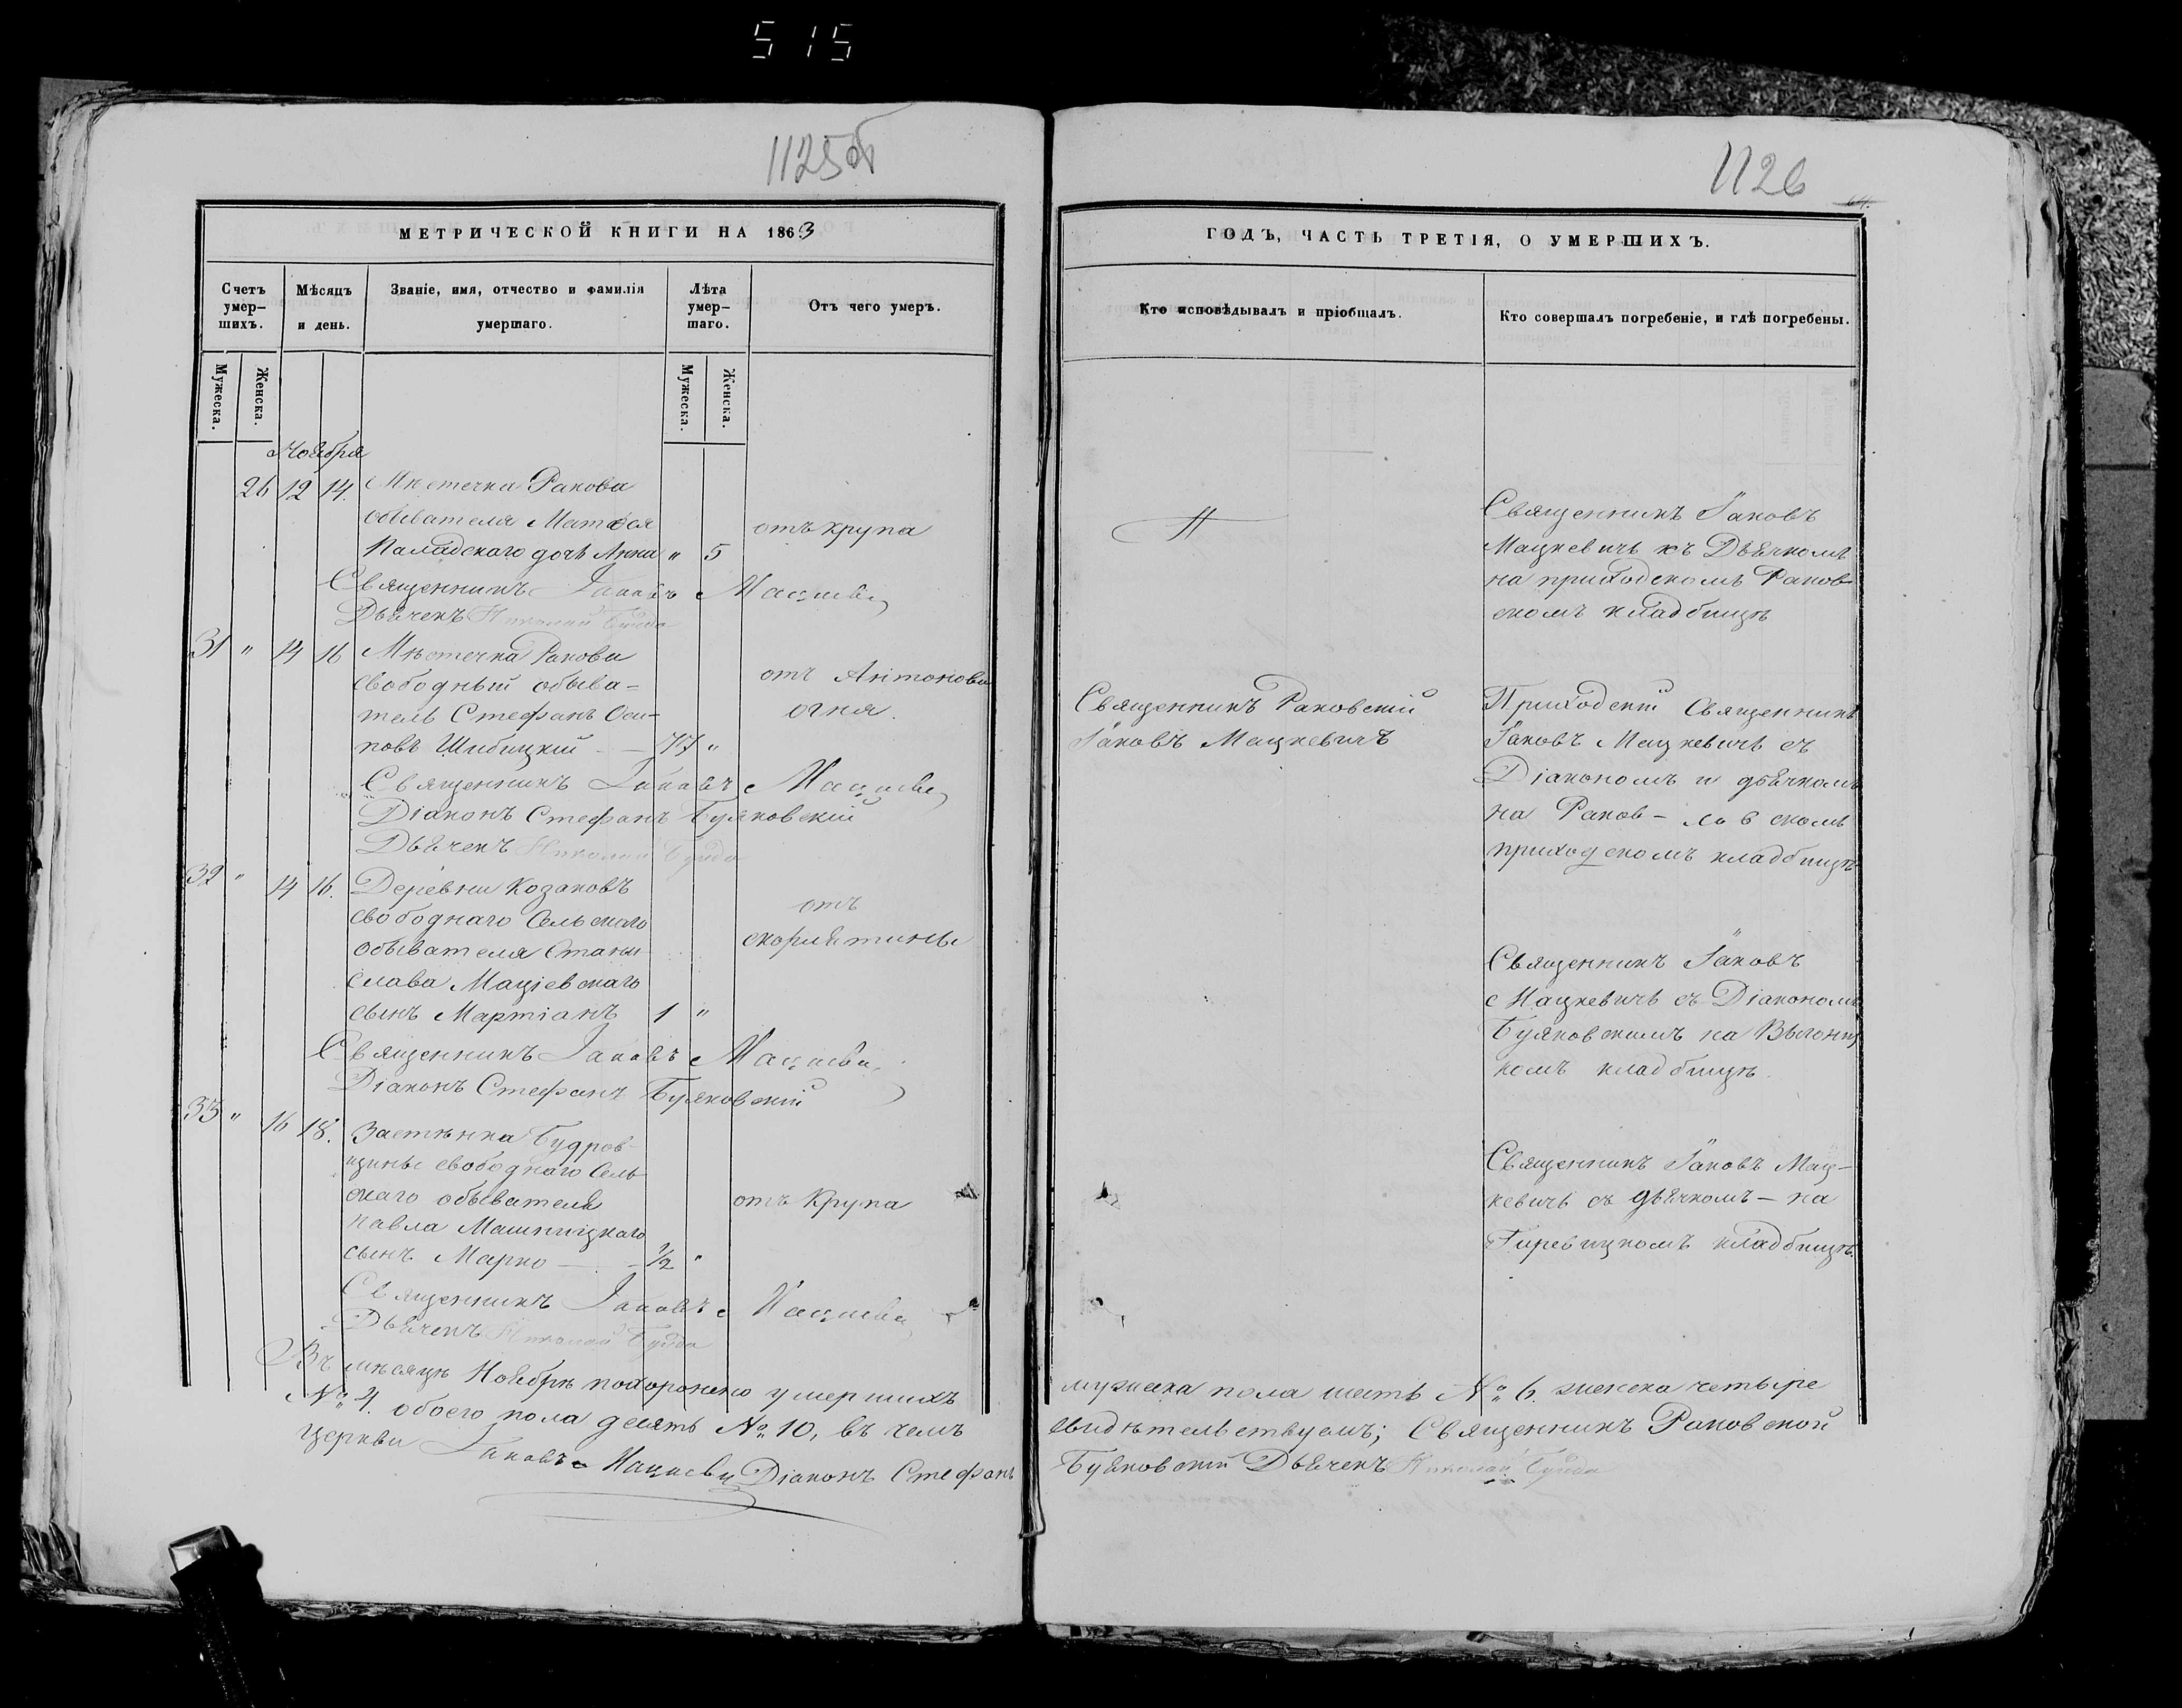 515
1125об
МЕТРИЧЕСКОЙ КНИГИ НА 1863
Счетъ умер-шихъ.
Мѣсяцъ и день.
Званіе, имя, отчество и фамилія умершаго.
Лѣта умер-шаго.
Отъ чего умеръ.
Мужеска.
Женска.
Мужеска.
Женска.
Ноября
26 12 14. Мѣстечка Ракова
обывателя Матѳея
отъ крупа
дочь Анна " 5
Священникъ Іаковъ Мацкевич
Дьячекъ Николай
31 " 14 16 Мѣстечка Ракова
свободный обыва-
отъ Антонова
тель Стефанъ Оси-
огня.
повъ Шибицкій - — 77 "
Священникъ Іаковъ Мацкевич
Діаконъ Стефанъ Буяковскій
Дьячекъ Николай
32 " 14 16. Деревни Козаковъ
свободнаго Сельскаго
отъ
обывателя Стани-
скорлятины
слава Маціевскаго
сынъ Мартіанъ 1 "
Священникъ Іаковъ Мацкевич
Діаконъ Стефанъ Буяковскій
33 " 16 18. Застѣнка Будров-
щины свободнаго Сель-
скаго обывателя
отъ Крупа
Павла Машницкаго
сынъ Марко — - 1/2 "
Священникъ Іаковъ Мацкевич
Дьячекъ Николай
Въ мѣсяцѣ Ноябрѣ похоронено умершихъ
№ 4. обоего пола десять № 10, въ чемъ
церкви Іаковъ Мацкевич Діаконъ Стефанъ
1126
64.
ГОДЪ, ЧАСТЬ ТРЕТІЯ, О УМЕРШИХЪ.
Кто исповѣдывалъ и пріобщалъ.
Кто совершалъ погребеніе, и гдѣ погребены.
Священникъ Іаковъ
Мацкевичъ съ Дьячкомъ
на приходскомъ Раков-
скомъ кладбищѣ
Священникъ Раковскій
Іаковъ Мацкевичъ
Приходскій Священникъ
Іаковъ Мацкевичъ съ
Діакономъ и дьячкомъ
на Раков-
скомъ
приходскомъ кладбищѣ
Священникъ Іаковъ
Мацкевичъ съ Діакономъ
Буяковскимъ на
комъ кладбищѣ
Священникъ Іаковъ Мац-
кевичъ съ дьячкомъ — на
Гиревицкомъ кладбищѣ.
мужеска пола шесть № 6. женска четыре
свидѣтельствуемъ; Священникъ Раковской
Буяковскій Дьячекъ Николай